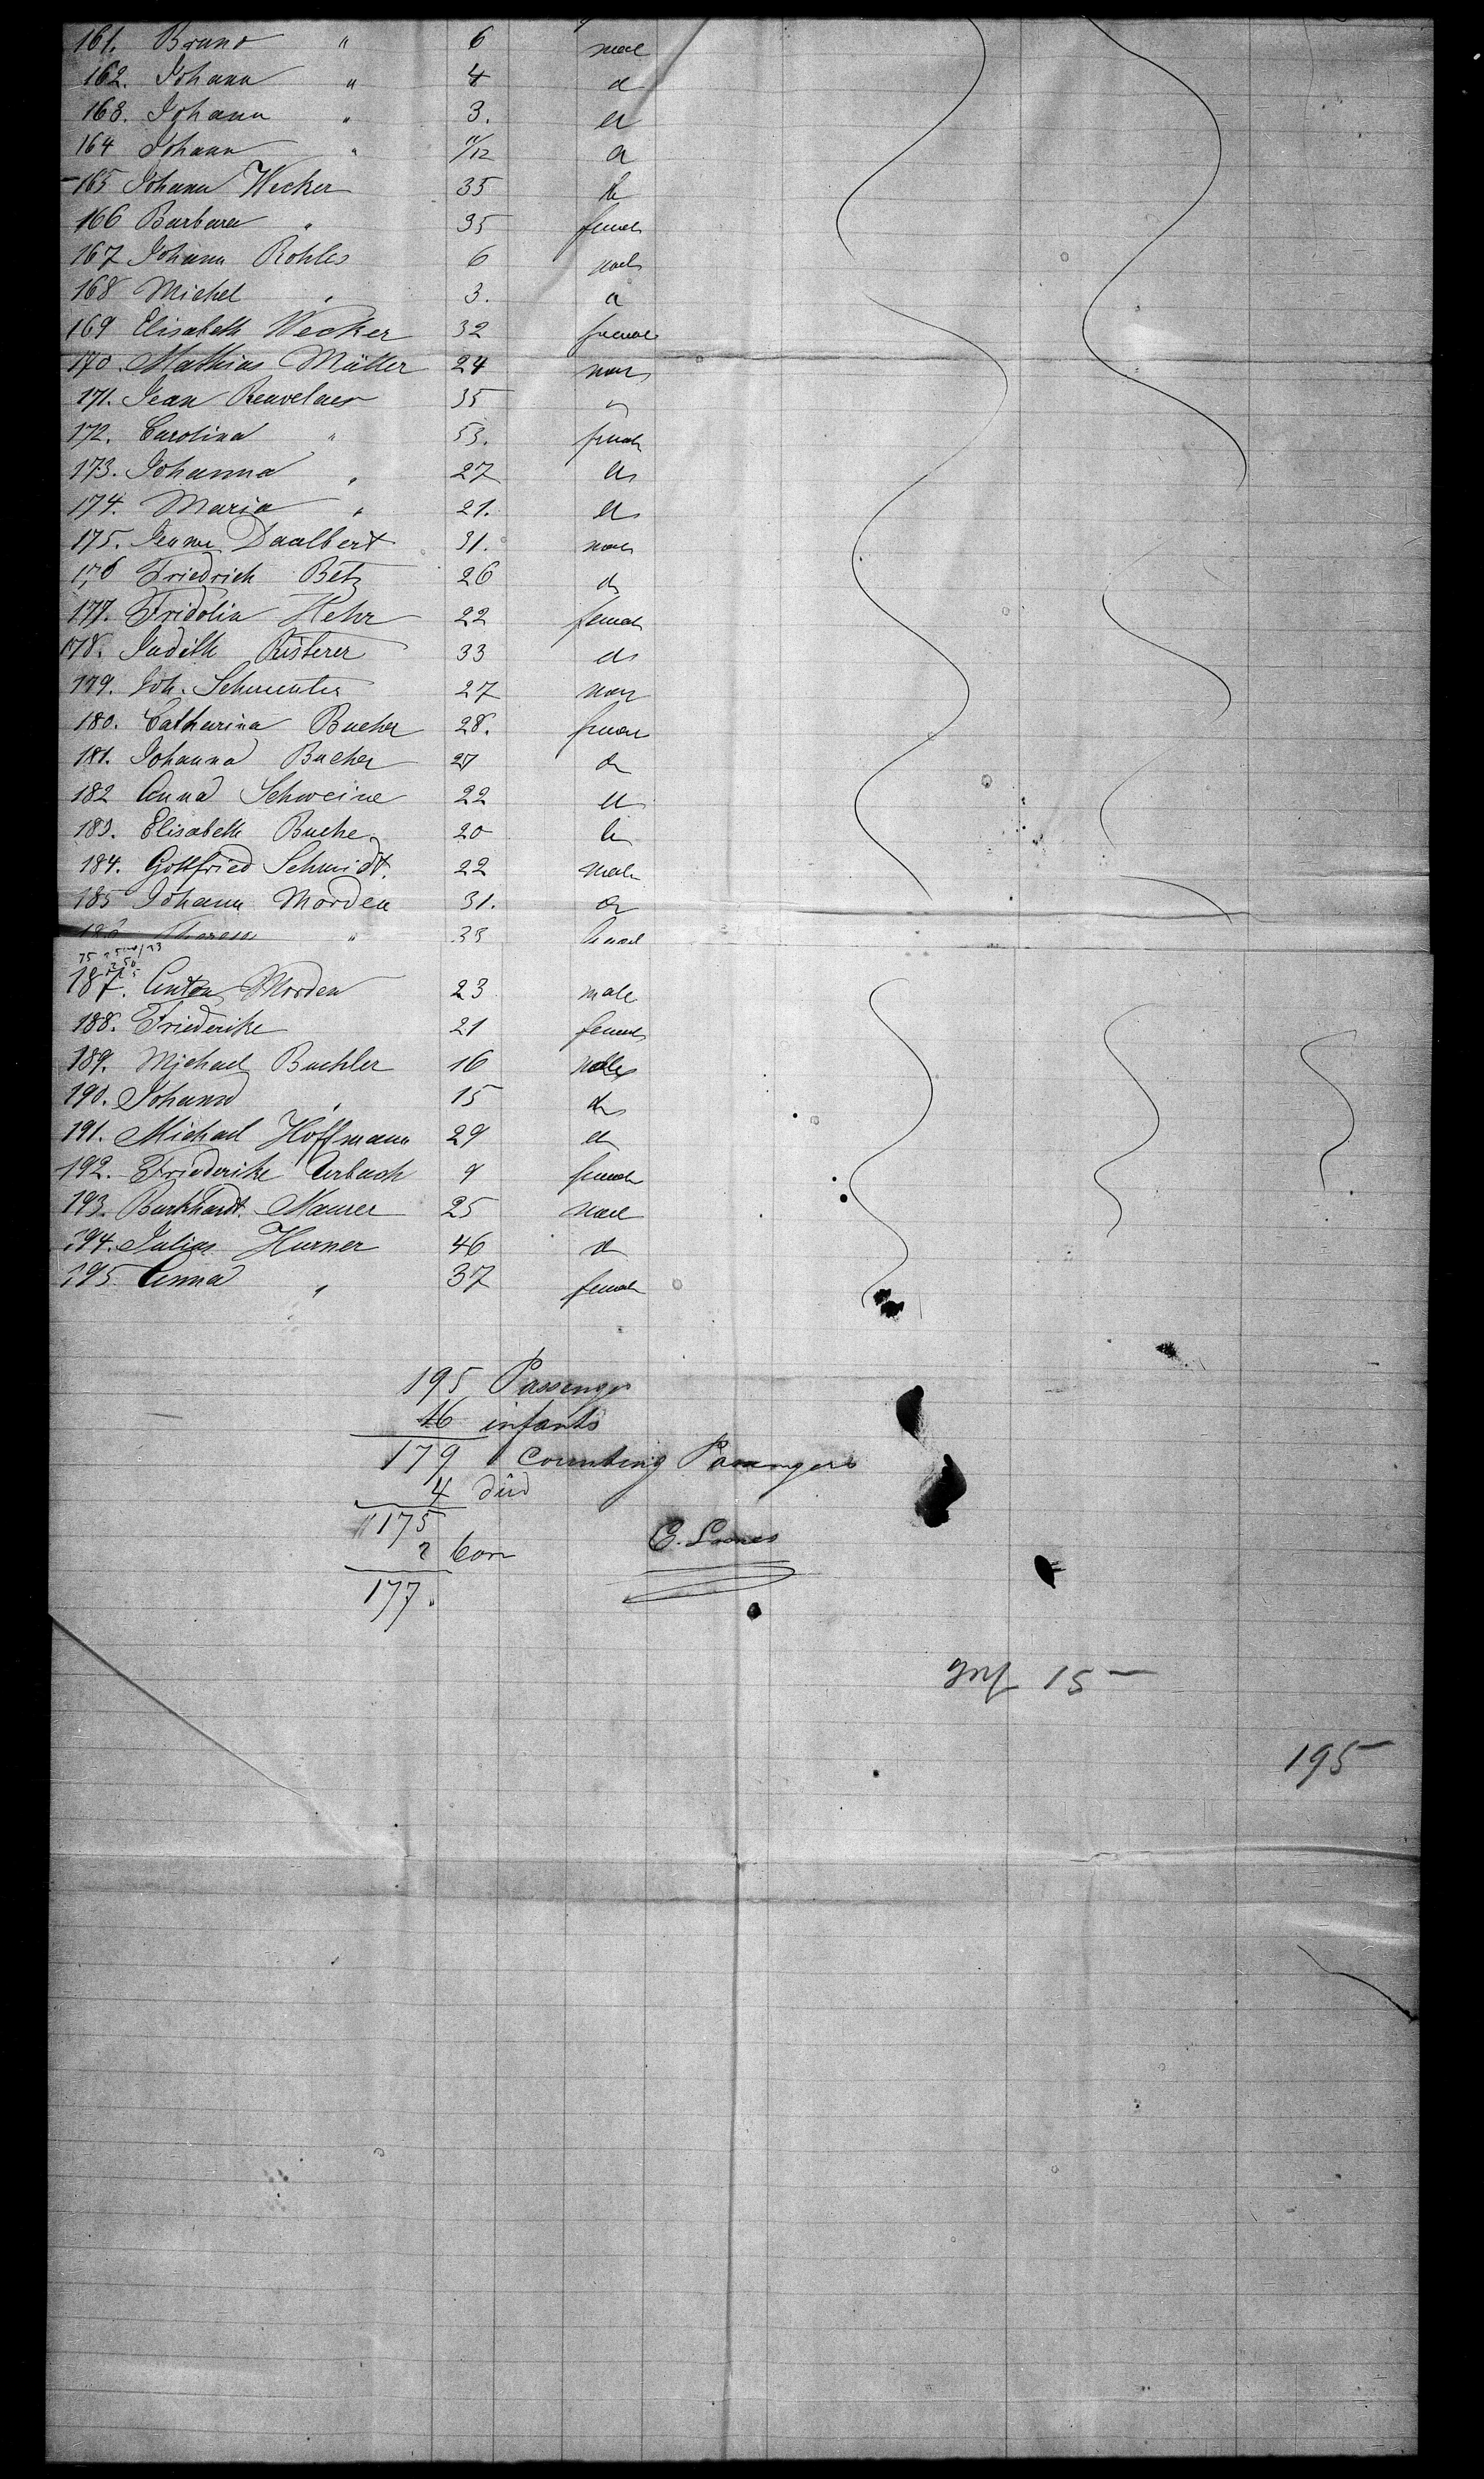 161. Bruno " 6 male
162. Johann " 4 d
163. Johann " 3. d
164 Johann " 11/12 d
165 Johann Wecker 35 do
166 Barbara " 35 female
167 Johann Rohles 6 male
168 Michel " 3. d
169 Elisabeth Wecker 32 female
170. Mathias Müller 24 male
171. Jean 35
172. Carolina " 53. female
173. Johanna " 27 do
174. Maria " 21. do
175. Daalbert 31. male
176 Friedrich Betz 26 do
177. Fridolin Hehr 22 female
178. Judith Risterer 33 do
179. Joh. 27 male
180. Catharina Bucher 28. female
181. Johanna Bucher 27 do
182 Anna Schweine 22 do
183. Elisabeth Buche 20 do
184. Gottfried Schmidt. 22 male
185 Johann Morden 31. do
186 Theresa " 33 female
187. Anton Morden 23 male
188. Friederike 21 female
189. Michael Buchler 16 male
190. Johann " 15 do
191. Michael Hoffmann 29 do
192. Friederike Aurbach 9 female
193. Burkhardt. Maurer 25 male
194. Julius Hurner 46 do
195 Anna " 37 female
195 Passenger
16 infants
179 Counting Passengers
4 died
175
2 born
177.
15 —
195